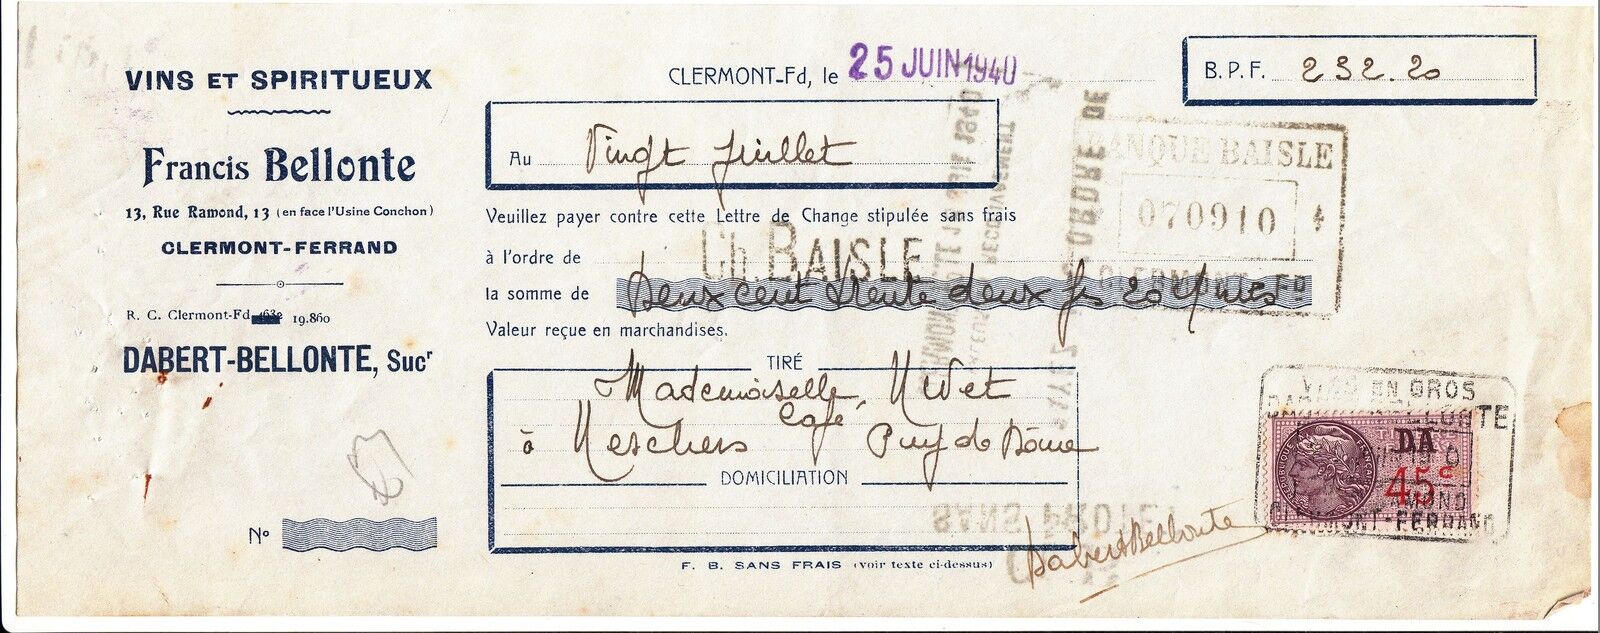 VINS ET SPIRITUEUX
Francis Bellonte
13, Rue Ramond, 13 (en face l'Usine Conchon)
CLERMONT-FERRAND
R. C. Clermont-Fd 19.860
DABERT-BELLONTE, Sucr
No
CLERMONT-Fd, le 25 JUIN 1940
B.P.F. 232.20
Au Vingt juillet
Veuillez payer contre cette Lettre de Change stipulée sans frais
à l'ordre de Ch. BAISLE
la somme de Deux cent trente deux frs 20
Valeur reçue en marchandises.
TIRÉ
Mademoiselle Nivet
Café
à Neschers Puy de Dôme
DOMICILIATION
F. B. SANS FRAIS (voir texte ci-dessus)
BANQUE BAISLE
070910
CLERMONT-Fd
ORDRE DE
SANS PROTET
VINS EN GROS
DA
45c
CLERMONT-FERRAND
Dabert Bellonte